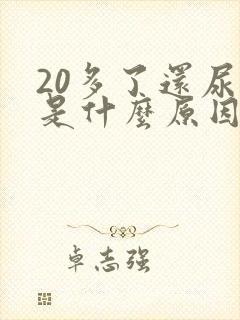 20多了還尿
是什麼原因
卓志强